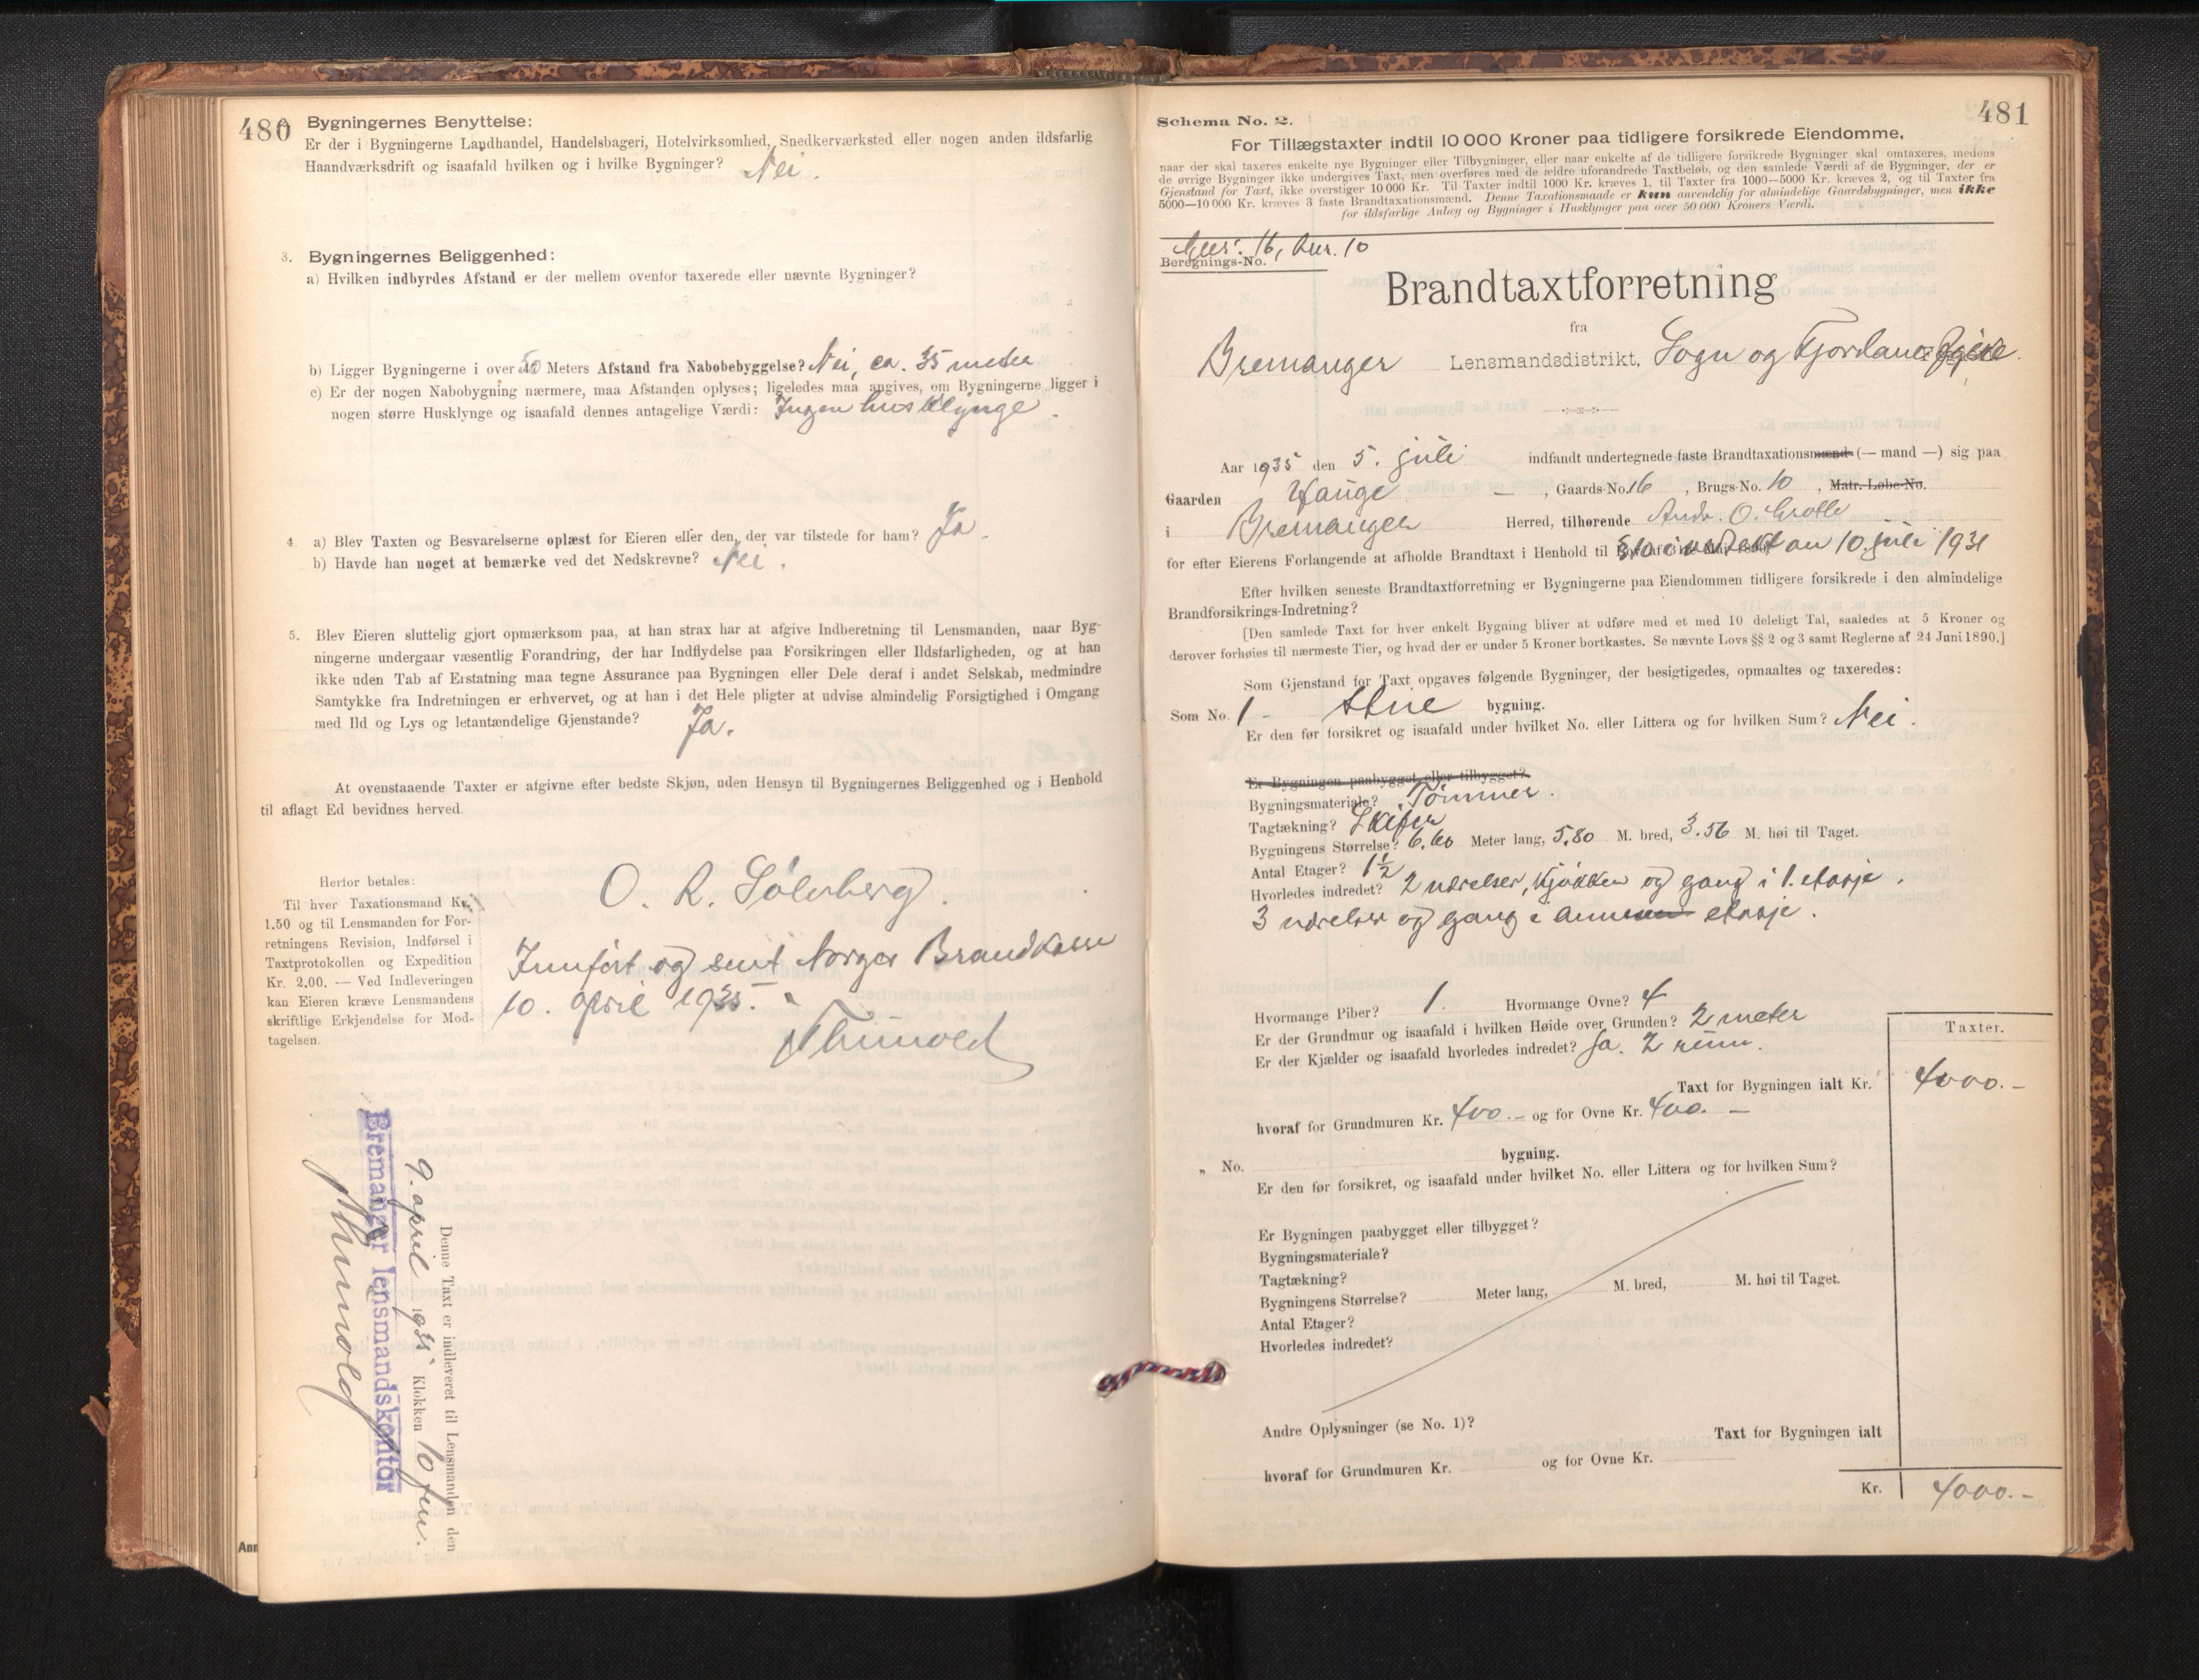 480
Bygningernes Benyttelse:
Er der i Bygningerne Landhandel, Handelsbageri, Hotelvirksomhed, Snedkerværksted eller nogen anden ildsfarlig
Haandværksdrift og isaafald hvilken og i hvilke Bygninger? Nei.
3. Bygningernes Beliggenhed:
a) Hvilken indbyrdes Afstand er der mellem ovenfor taxerede eller nævnte Bygninger?
b) Ligger Bygningerne i over 50 Meters Afstand fra Nabobebyggelse? Nei, ca. 35 meter
c) Er der nogen Nabobygning nærmere, maa Afstanden oplyses; ligeledes maa angives, om Bygningerne ligger i
nogen større Husklynge og isaafald dennes antagelige Værdi: Ingen husklynge.
4. a) Blev Taxten og Besvarelserne oplæst for Eieren eller den, der var tilstede for ham? Ja.
b) Havde han noget at bemærke ved det Nedskrevne? Nei.
5. Blev Eieren sluttelig gjort opmærksom paa, at han strax har at afgive Indberetning til Lensmanden, naar Byg-
ningerne undergaar væsentlig Forandring, der har Indflydelse paa Forsikringen eller Ildsfarligheden, og at han
ikke uden Tab af Erstatning maa tegne Assurance paa Bygningen eller Dele deraf i andet Selskab, medmindre
Samtykke fra Indretningen er erhvervet, og at han i det Hele pligter at udvise almindelig Forsigtighed i Omgang
med Ild og Lys og letantændelige Gjenstande? Ja.
At ovenstaaende Taxter er afgivne efter bedste Skjøn, uden Hensyn til Bygningernes Beliggenhed og i Henhold
til aflagt Ed bevidnes herved.
Herfor betales:
Til hver Taxationsmand Kr.
1.50 og til Lensmanden for For-
retningens Revision, Indførsel i
Taxtprotokollen og Expedition
Kr. 2.00. — Ved Indleveringen
kan Eieren kræve Lensmandens
skriftlige Erkjendelse for Mod-
tagelsen.
O. R. Sølvberg.
Innført og sent Norges Brandkasse
10. april 1935.
Denne Taxt er indleveret til Lensmanden den
9. april 1935 Klokken 10 fm.
Bremanger lensmandskontor
Ann
481
Schema No. 2.
For Tillægstaxter indtil 10 000 Kroner paa tidligere forsikrede Eiendomme,
naar der skal taxeres enkelte nye Bygninger eller Tilbygninger, eller naar enkelte af de tidligere forsikrede Bygninger skal omtaxeres, medens
de øvrige Bygninger ikke undergives Taxt, men overføres med de ældre uforandrede Taxtbeløb, og den samlede Værdi af de Bygninger, der er
Gjenstand for Taxt, ikke overstiger 10 000 Kr. Til Taxter indtil 1000 Kr. kræves 1, til Taxter fra 1000—5000 Kr. kræves 2, og til Taxter fra
5000—10 000 Kr. kræves 3 faste Brandtaxationsmænd. Denne Taxationsmaade er kun anvendelig for almindelige Gaardsbygninger, men ikke
for ildsfarlige Anlæg og Bygninger i Husklynger paa over 50 000 Kroners Værdi.
Gnr. 16, bnr. 10
Beregnings-No.
Brandtaxtforretning
fra
Bremanger Lensmandsdistrikt, Sogn og Fjordane fylke.
Aar 1935 den 5. juli indfandt undertegnede faste Brandtaxationsmænd (— mand —) sig paa
Gaarden Hauge — , Gaards-No. 16 , Brugs-No. 10 , Matr.-Løbe-No.
i Bremanger Herred, tilhørende Andr. O. Grotle
for efter Eierens Forlangende at afholde Brandtaxt i Henhold til av 10. juli 1931
Efter hvilken seneste Brandtaxtforretning er Bygningerne paa Eiendommen tidligere forsikrede i den almindelige
Brandforsikrings-Indretning?
[Den samlede Taxt for hver enkelt Bygning bliver at udføre med et med 10 deleligt Tal, saaledes at 5 Kroner og
derover forhøies til nærmeste Tier, og hvad der er under 5 Kroner bortkastes. Se nævnte Lovs §§ 2 og 3 samt Reglerne af 24 Juni 1890.]
Som Gjenstand for Taxt opgaves følgende Bygninger, der besigtigedes, opmaaltes og taxeredes:
Som No. 1 - Stue bygning.
Er den før forsikret og isaafald under hvilket No. eller Littera og for hvilken Sum? Nei.
Er Bygningen paabygget eller tilbygget?
Bygningsmateriale? Tømmer.
Tagtækning? Skifer
Bygningens Størrelse? 6.60 Meter lang, 5.80 M. bred, 3.56 M. høi til Taget.
Antal Etager? 1½
Hvorledes indredet? 2 værelser, kjøkken og gang i 1. etasje.
3 værelser og gang i annen etasje.
Hvormange Piber? 1. Hvormange Ovne? 4
Er der Grundmur og isaafald i hvilken Høide over Grunden? 2 meter
Er der Kjælder og isaafald hvorledes indredet? Ja. 2 rum.
Taxter.
Taxt for Bygningen ialt Kr. 4000.-
hvoraf for Grundmuren Kr. 400.- og for Ovne Kr. 400.-
„ No. bygning.
Er den før forsikret, og isaafald under hvilket No. eller Littera og for hvilken Sum?
Er Bygningen paabygget eller tilbygget?
Bygningsmateriale?
Tagtækning?
Bygningens Størrelse? Meter lang, M. bred, M. høi til Taget.
Antal Etager?
Hvorledes indredet?
Andre Oplysninger (se No. 1)?
Taxt for Bygningen ialt
hvoraf for Grundmuren Kr. og for Ovne Kr.
Kr. 4000.-